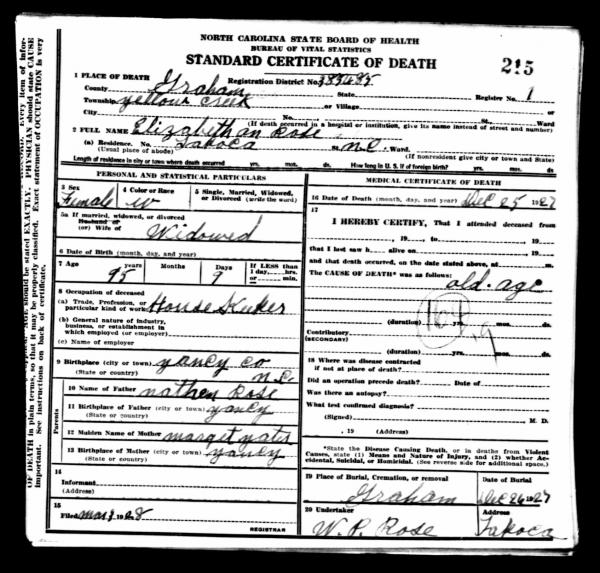 NORTH CAROLINA STATE BOARD OF HEALTH
BUREAU OF VITAL STATISTICS
STANDARD CERTIFICATE OF DEATH
215
1 PLACE OF DEATH
Registration District No. 383-6485
County Graham State Register No. 1
Township yellow Creek or Village
City No. St., Ward
(If death occurred in a hospital or institution, give its name instead of street and number)
2 FULL NAME Elizabeth an Rose
(a) Residence. No. Tapoca St. N.C. Ward.
(Usual place of abode) (If nonresident give city or town and State)
Length of residence in city or town where death occurred yrs. mos. ds. How long in U. S. if of foreign birth? yrs. mos. ds.
PERSONAL AND STATISTICAL PARTICULARS
3 Sex Female
4 Color or Race W
5 Single, Married, Widowed, or Divorced (write the word)
5a If married, widowed, or divorced
Husband of
(or) Wife of Widowed
6 Date of Birth (month, day, and year)
7 Age 95 years Months Days 9 If LESS than 1 day, hrs. or min.
8 Occupation of deceased
(a) Trade, Profession, or particular kind of work House Keeker
(b) General nature of industry, business, or establishment in which employed (or employer)
(c) Name of employer
9 Birthplace (city or town) yancy co
(State or country) N.C.
10 Name of Father nathen Rose
11 Birthplace of Father (city or town) yancy
(State or country)
12 Maiden Name of Mother marget yates
13 Birthplace of Mother (city or town) yancy
(State or country)
Parents
14
Informant
(Address)
15
Filed mar 1 1928
REGISTRAR
MEDICAL CERTIFICATE OF DEATH
16 Date of Death (month, day, and year) Dec 25 1927
17
I HEREBY CERTIFY, That I attended deceased from
, 19 , to , 19
that I last saw h alive on , 19
and that death occurred, on the date stated above, at m.
The CAUSE OF DEATH* was as follows:
old. age
164
9
(duration) yrs. mos. ds.
Contributory
(SECONDARY)
(duration) yrs. mos. ds.
18 Where was disease contracted
if not at place of death?
Did an operation precede death? Date of
Was there an autopsy?
What test confirmed diagnosis?
(Signed) M. D.
, 19 (Address)
*State the Disease Causing Death, or in deaths from Violent Causes, state (1) Means and Nature of Injury, and (2) whether Accidental, Suicidal, or Homicidal. (See reverse side for additional space.)
19 Place of Burial, Cremation, or removal Date of Burial
Graham Dec 26 1927
20 Undertaker Address
W. P. Rose Tapoca
AGE should be stated EXACTLY. PHYSICIAN should state CAUSE
OF DEATH in plain terms, so that it may be properly classified. Exact statement of OCCUPATION is very
important. See instructions on back of certificate.